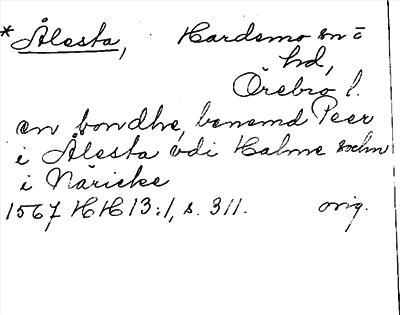 *Ålesta, Hardemo sn o
hd,
Örebro l.
en bondhe, benemd Peer
i Ålesta vdi Halme sochn
i Näricke
1567 HH 13:1, s. 311. orig.